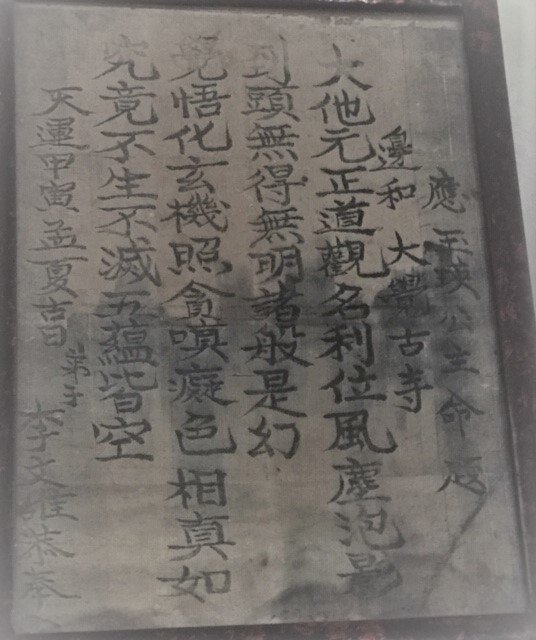 應玉瑛公主命題
邊和大覺古寺
大他元正道觀名利位風塵泡影
到頭無得無明諸般是幻
覺悟化玄機照貪嗔癡色相真如
究竟不生不滅五蘊皆空
天運甲寅孟夏吉日
弟子李文恭奉